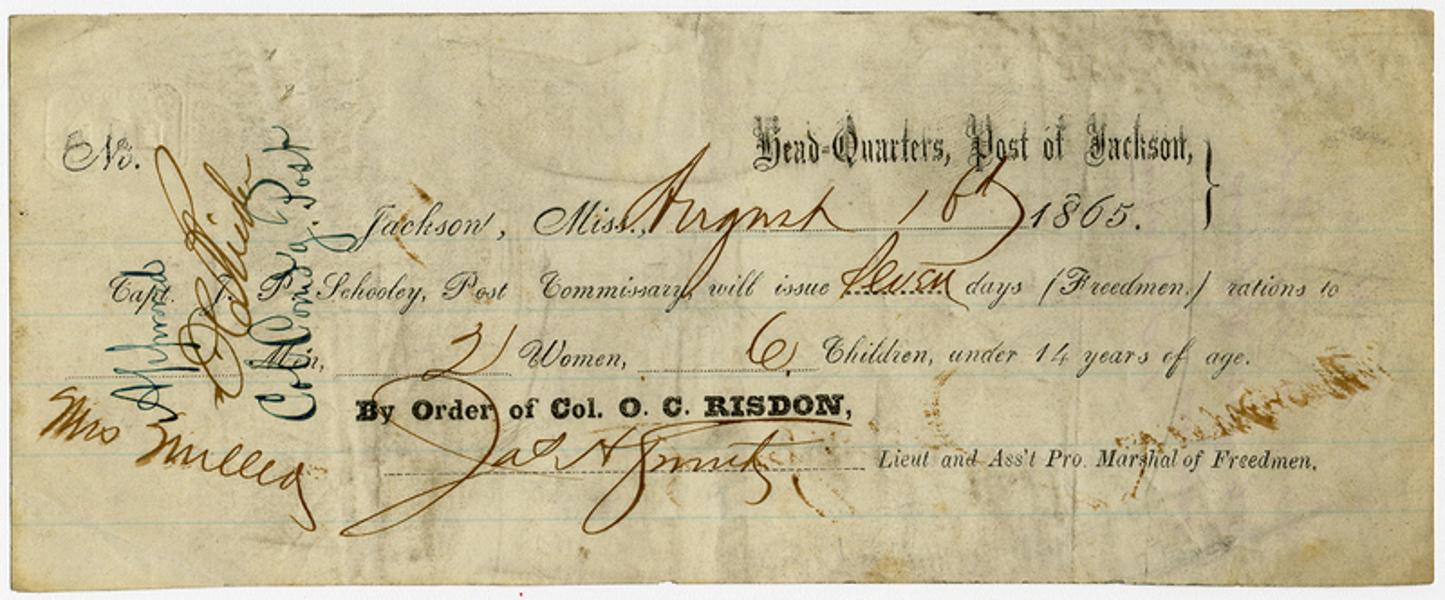 Head-Quarters, Post of Jackson,
No.
Jackson, Miss., August 16th 1865.
Capt. J. P. Schooley, Post Commissary, will issue seven days (Freedmen.) rations to
Men, 2 Women, 6 Children, under 14 years of age.
By Order of Col. O. C. RISDON,
Jas H
Lieut and Ass't Pro. Marshal of Freedmen.
Approved
Col Comdg. Post
Mrs